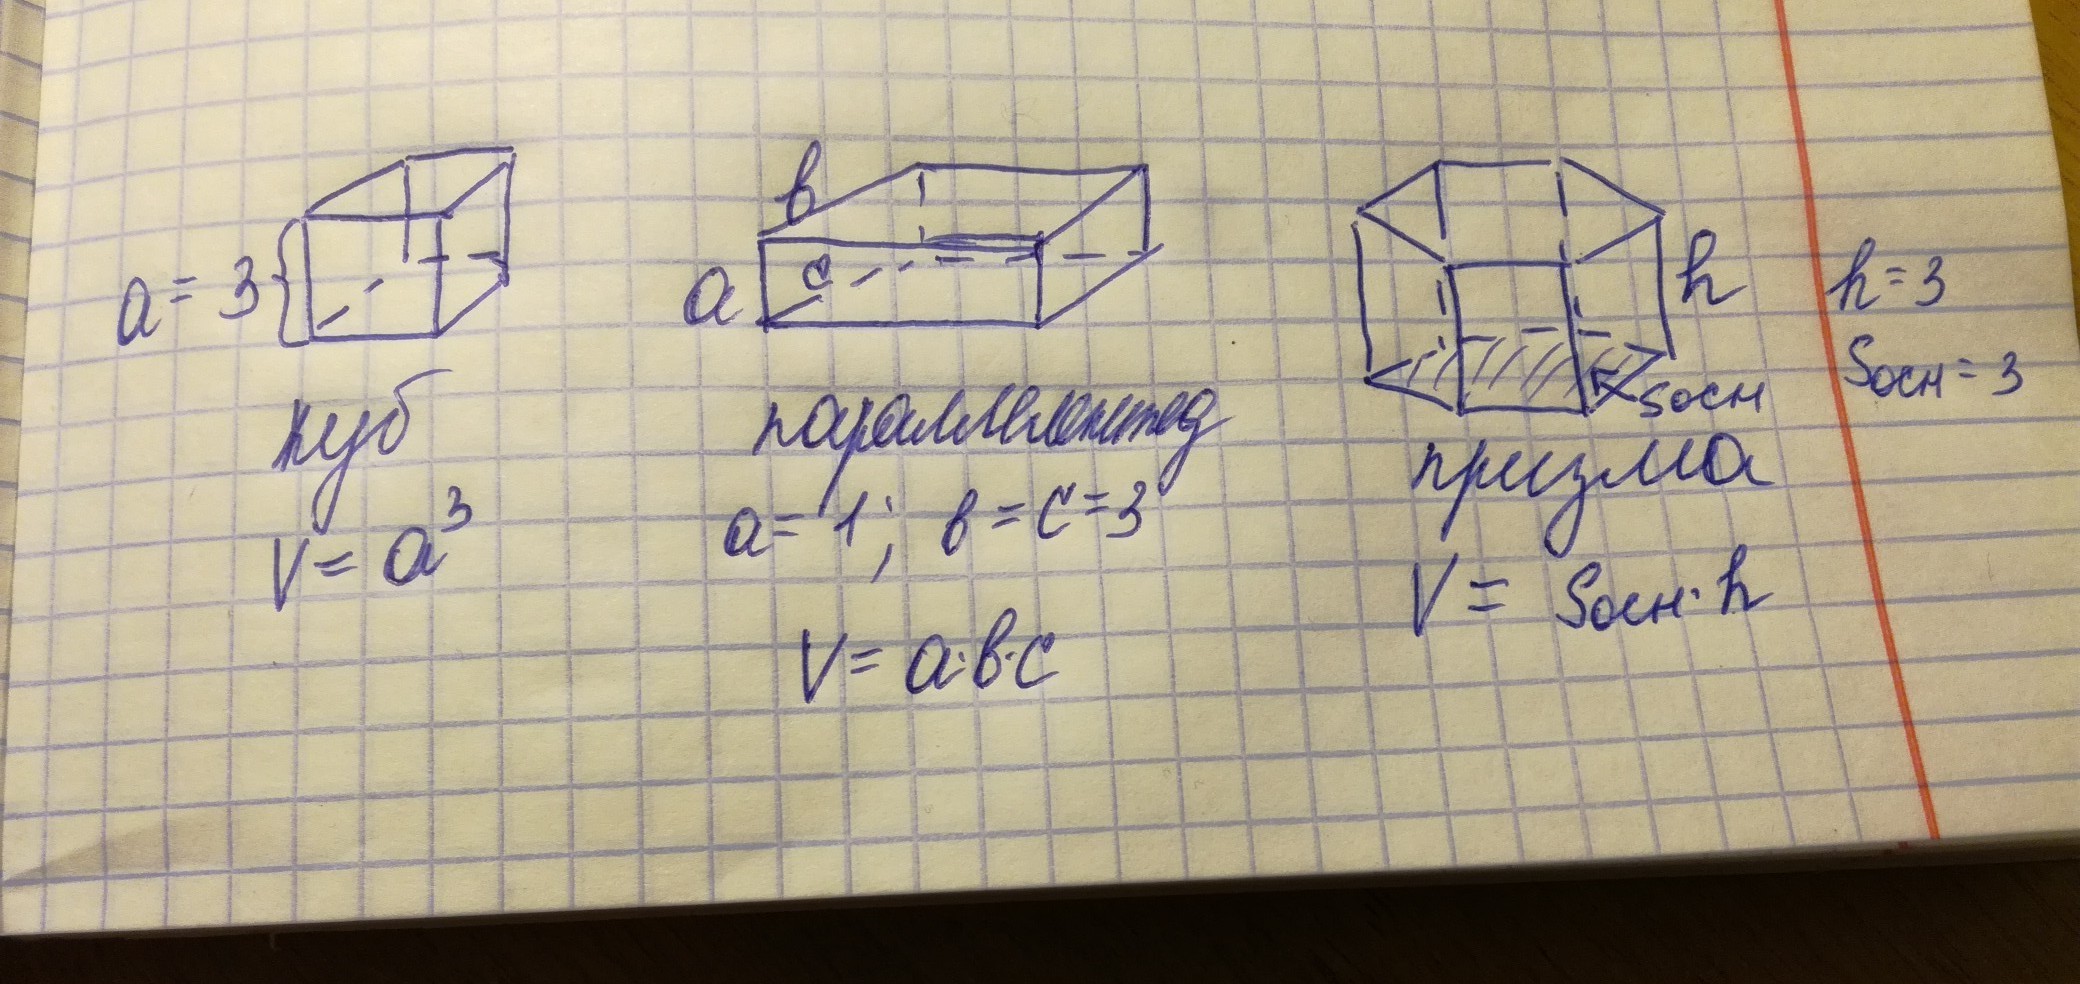 a = 3
куб
V = a³
в
a
c
параллелепипед
a = 1; в = c = 3
V = a·в·c
h
Sосн
призма
V = Sосн · h
h = 3
Sосн = 3